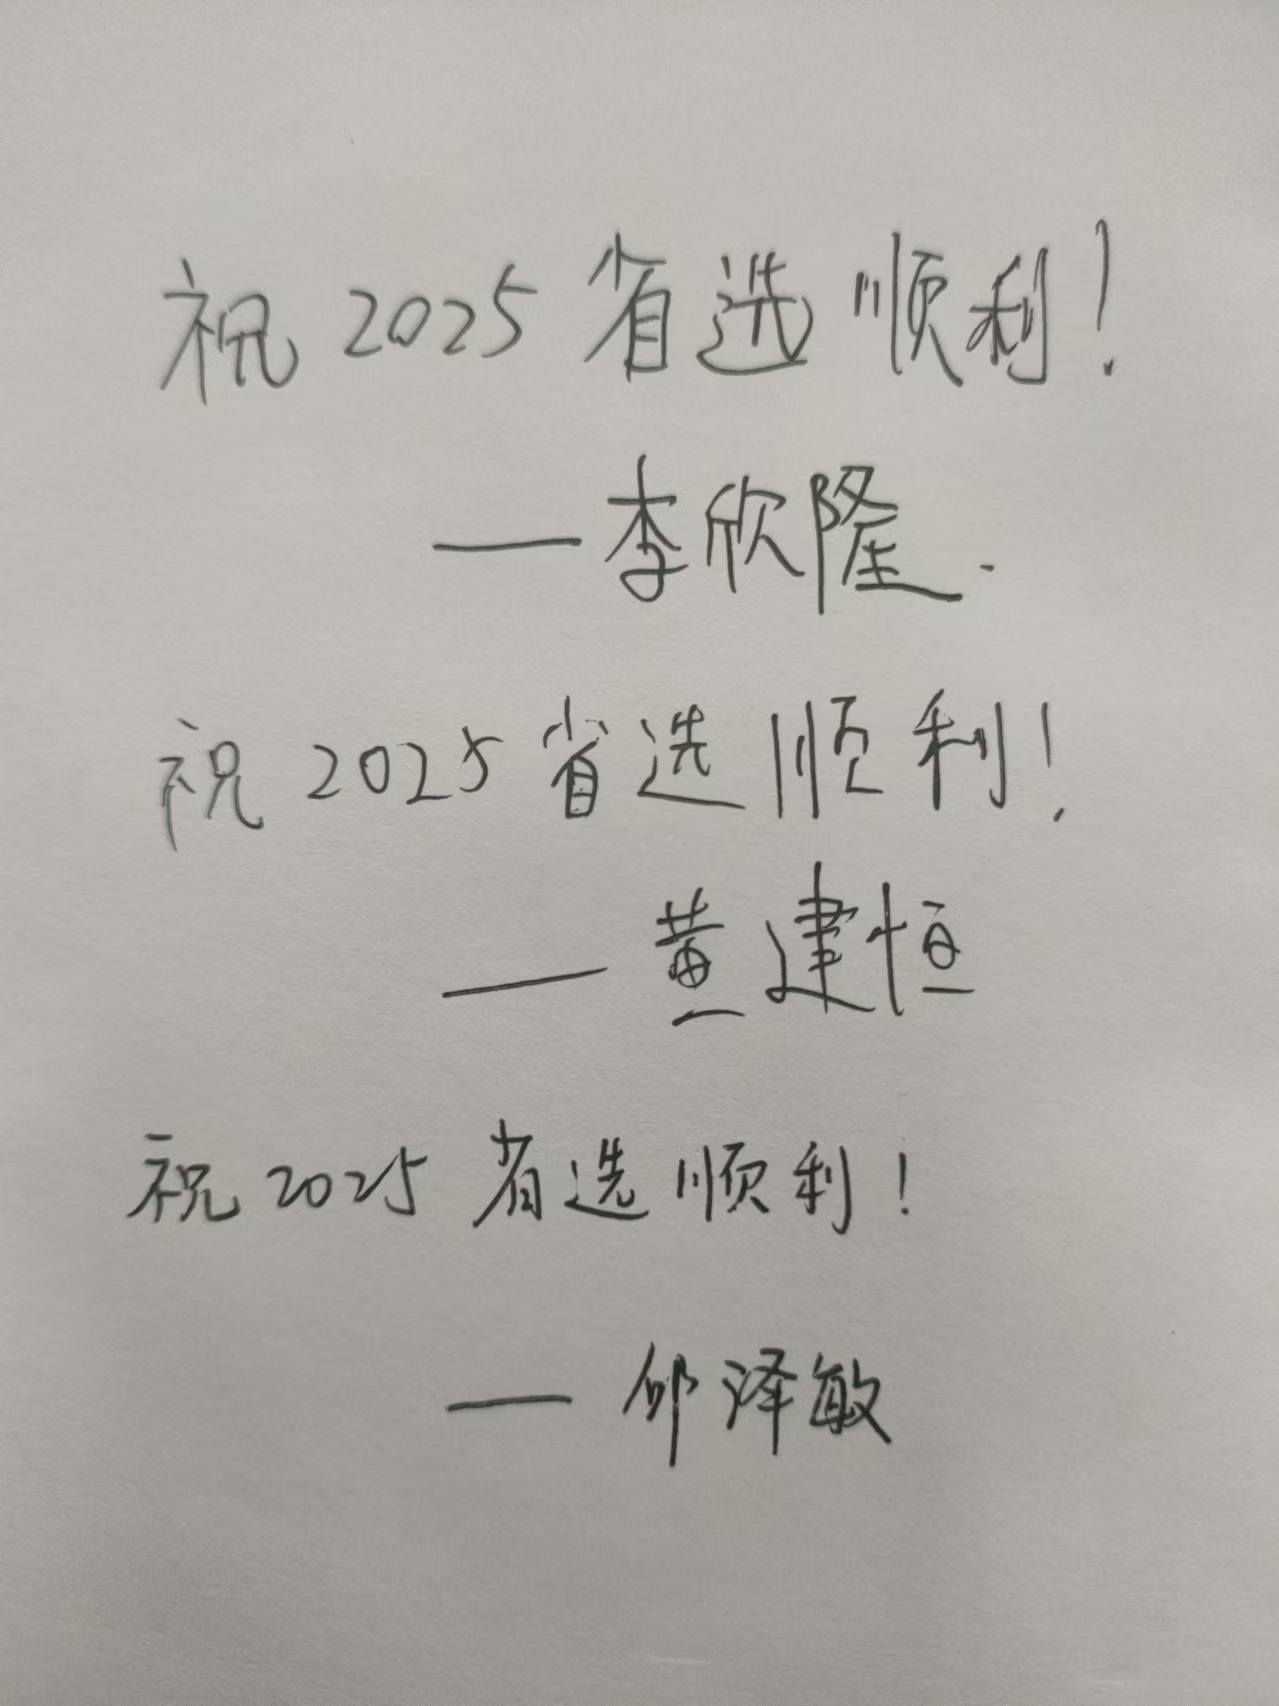 祝 2025 省选 顺利！
——李欣隆.
祝 2025 省选 顺利！
——黄建恒
祝 2025 省选 顺利！
——邱泽敏